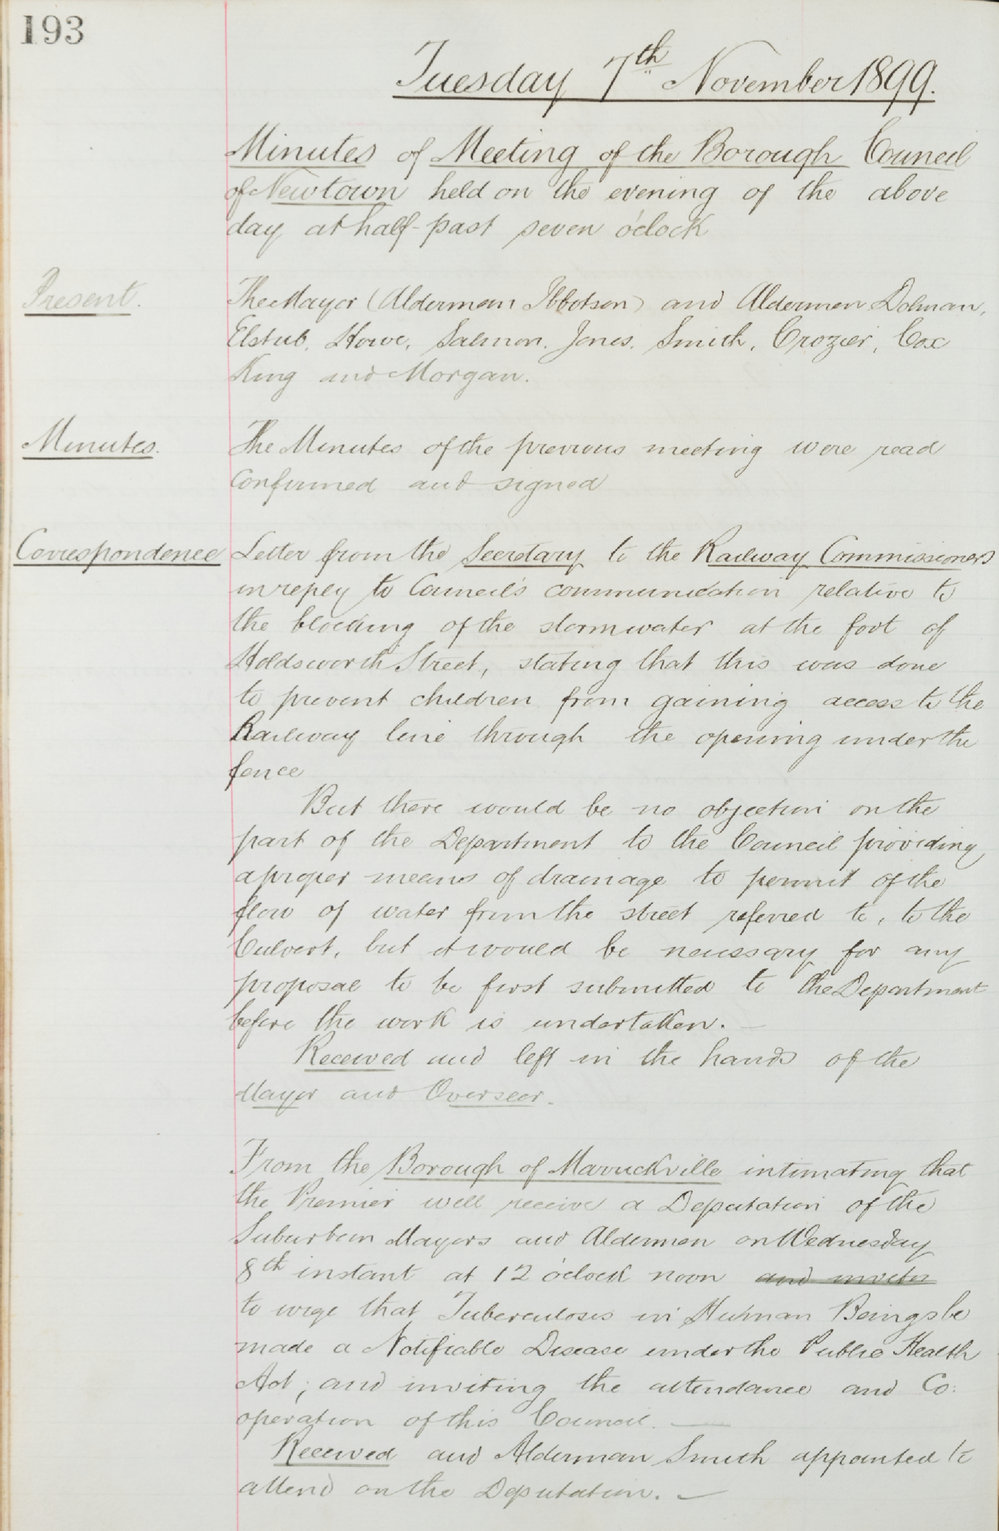 193
Tuesday 7th November 1899.
Minutes of Meeting of the Borough Council
of Newtown held on the evening of the above
day at half-past seven o'clock
Present.
The Mayor (Alderman Ibbotson) and Aldermen Dolman,
Elstub, Howe, Salmon, Jones, Smith, Crozier, Cox
King and Morgan.
Minutes.
The Minutes of the previous meeting were read
Confirmed and signed
Correspondence
Letter from the Secretary to the Railway Commissioners
in reply to Council's communication relative to
the blocking of the stormwater at the foot of
Holdsworth Street, stating that this was done
to prevent children from gaining access to the
Railway line through the opening under the
fence
But there would be no objection on the
part of the Department to the Council providing
a proper means of drainage to permit of the
flow of water from the street referred to, to the
Culvert, but it would be necessary for any
proposal to be first submitted to the Department
before the work is undertaken. —
Received and left in the hands of the
Mayor and Overseer.
From the Borough of Marrickville intimating that
the Premier will receive a Deputation of the
Suburban Mayors and Aldermen on Wednesday
8th instant at 12 o'clock noon and invites
to urge that Tuberculosis in Human Beings be
made a Notifiable Disease under the Public Health
Act; and inviting the attendance and Co:
operation of this Council. —
Received and Alderman Smith appointed to
attend on the Deputation. —